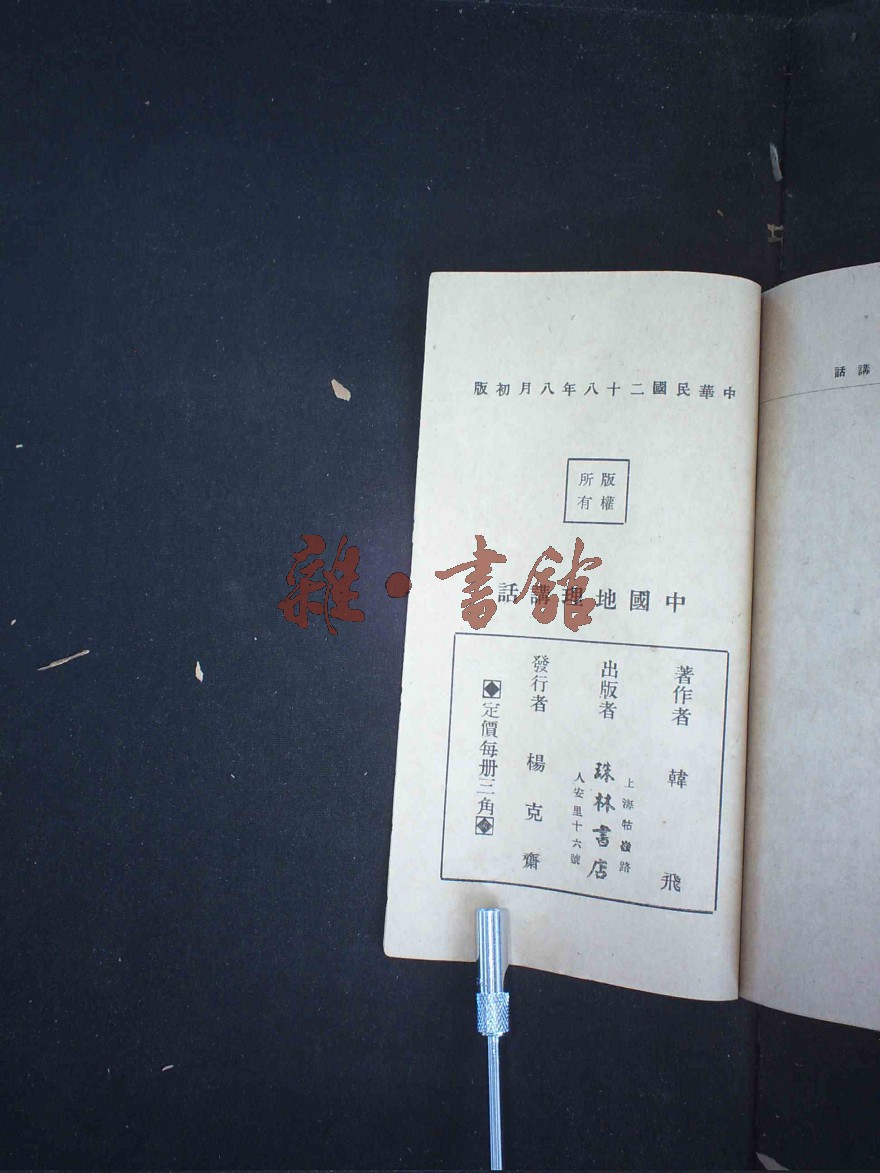 中華民國二十八年八月初版
版權
所有
中國地理講話
著作者 韓飛
出版者 珠林書店
上海牯嶺路
人安里十六號
發行者 楊克齋
定價每册三角
講話
雜·書館